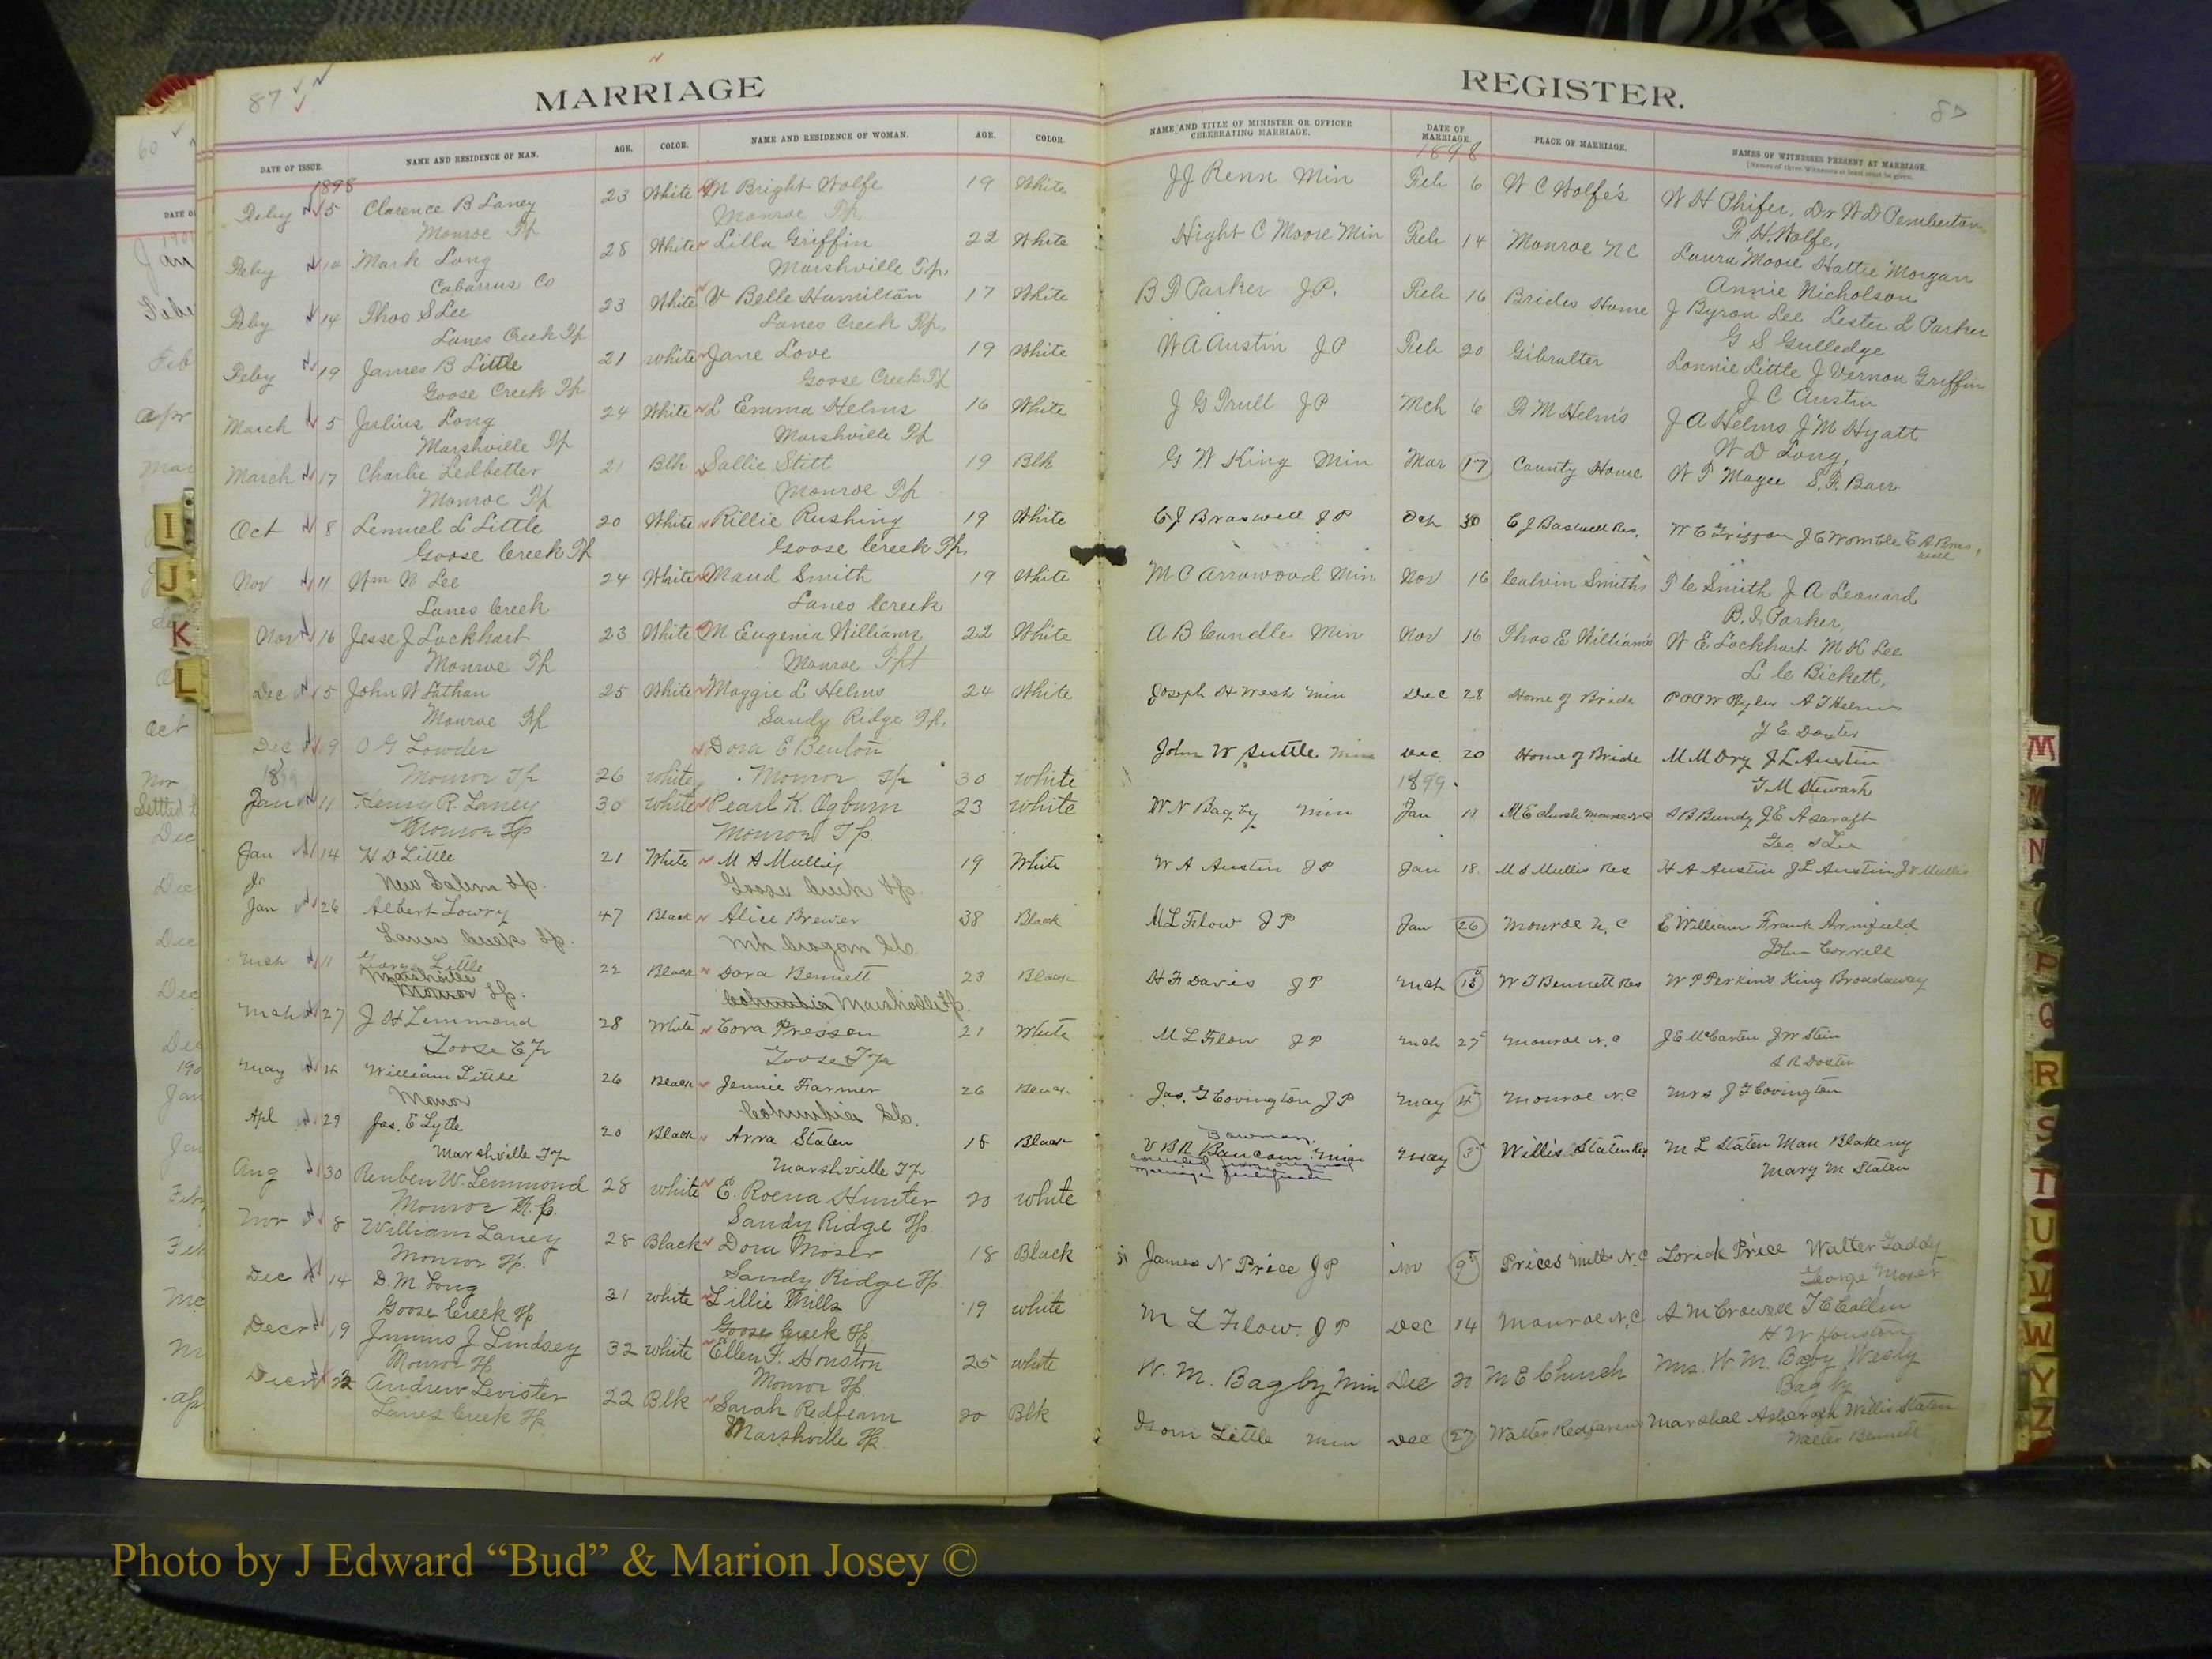 87
MARRIAGE
DATE OF ISSUE. NAME AND RESIDENCE OF MAN. AGE. COLOR. NAME AND RESIDENCE OF WOMAN. AGE. COLOR.
1898
Feby 5 Clarence B Laney 23 White M Bright Wolfe 19 White
Monroe Tp Monroe Tp.
Feby 10 Mark Long 28 White Lilla Griffin 22 White
Cabarrus Co Marshville Tp.
Feby 14 Thos S Lee 23 White V Belle Hamilton 17 White
Lanes Creek Tp Lanes Creek Tp.
Feby 19 James B Little 21 white Jane Love 19 White
Goose Creek Tp Goose Creek Tp
March 5 Julius Long 24 White L Emma Helms 16 White
Marshville Tp Marshville Tp
March 17 Charlie Ledbetter 21 Blk Sallie Stitt 19 Blk
Monroe Tp Monroe Tp
Oct 8 Lemuel L Little 20 White Rillie Rushing 19 White
Goose Creek Tp Goose Creek Tp.
Nov 11 Wm W Lee 24 White Maud Smith 19 White
Lanes Creek Lanes Creek
Nov 16 Jesse J Lockhart 23 White M Eugenia Williams 22 White
Monroe Tp Monroe
Dec 5 John W Lathan 25 White Maggie L Helms 24 White
Monroe Tp Sandy Ridge Tp.
Dec 19 O G Lowder Dora E Benton
1899 Monroe Tp 26 white Monroe Tp 30 white
Jan 11 Henry R. Laney 30 white Pearl K. Ogburn 23 white
Monroe Tp Monroe Tp
Jan 14 H D Little 21 White M A Mullis 19 White
Jr New Salem Tp. Goose Creek Tp.
Jan 26 Albert Lowry 47 Black Alice Brewer 38 Black
Lanes Creek Tp.
Mch 11 Little 22 Black Dora Bennett 23 Black
Marshville
Monroe Tp. Columbia Marshville Tp.
Mch 27 J H Lemmond 28 White Cora Presson 21 White
Goose C Tp Goose Tp
May 4 William Little 26 Black Jennie Farmer 26 Black
Monroe Columbia
Apl 29 Jas. E Lytle 20 Black Arra Staten 18 Black
Marshville Tp Marshville Tp
Aug 30 Reuben W. Lemmond 28 white E. Roena Hunter 20 white
Monroe N.C. Sandy Ridge Tp.
Nov 8 William Laney 28 Black Dora Moser 18 Black
Monroe Tp. Sandy Ridge Tp
Dec 14 D. M Long 21 white Lillie Mills 19 white
Goose Creek Tp Goose Creek Tp.
Decr 19 Junius J Lindsey 32 white Ellen F. Houston 25 white
Monroe Tp Monroe Tp
Decr Andrew Levister 22 Blk Sarah Redfearn 20 Blk
Lanes Creek Tp Marshville Tp
REGISTER.
87
NAME AND TITLE OF MINISTER OR OFFICER CELEBRATING MARRIAGE. DATE OF MARRIAGE. PLACE OF MARRIAGE. NAMES OF WITNESSES PRESENT AT MARRIAGE.
[Names of three Witnesses at least must be given.
1898
J J Renn Min Feb 6 W C Wolfe's W H Phifer, Dr W D Pemberton
R. H. Wolfe,
Hight C Moore Min Feb 14 Monroe NC Laura Moore Hattie Morgan
Annie Nicholson
B F Parker J.P. Feb 16 Brides Home J Byron Lee Lester L Parker
G S Gulledge
W A Austin J P Feb 20 Gibralter Lonnie Little J Vernon Griffin
J C Austin
J G Trull J P Mch 6 R M Helms J A Helms J M Hyatt
W D Long,
G W King Min Mar 17 County Home W T Magee S. R. Barr
E J Braswell J P Oct 30 E J Baswell Res. W E Grissom J C Womble E A Bras-
well
M C Arrowood Min Nov 16 Calvin Smiths T C Smith J A Leonard
B. F. Parker,
A B Caudle Min Nov 16 Thos E Williams W E Lockhart M K Lee
L C Bickett,
Joseph H West Min Dec 28 Home of Bride Plyler A T Helms
Y E Doster
John W Suttle Min Dec 20 Home of Bride M M Dry J L Austin
1899 T. M Stewart
W N Bagby Min Jan 11 M E church Monroe N.C S B Bundy J E Ascraft
Geo S Lee
W A Austin J P Jan 18 M S Mullis Res H A Austin J L Austin J W Mullis
M L Flow J P Jan 26 Monroe N. C E William Frank Armfield
John Correll
H F Davis J P Mch W T Bennett Res W P Perkins King Broadaway
M L Flow J P Mch 27 Monroe N. C J E McCarten J W Stein
S R Doster
Jas. G Covington J P May 4 Monroe N. C Mrs J G Covington
Bowman
V B R Baucom Min May 3 Willis Staten Res M L Staten Man Blakeny
Mary M Staten
James N Price J P Nov 9 Prices Mill N. C Lorick Price Walter Gaddy
George Moser
M L Flow. J P Dec 14 Monroe N. C A M Crowell T C Collin
H W Houston
W. M. Bagby Min Dec 20 M E Church Mrs. W. M. Bagby Wesly
Bagby
Isom Little Min Dec 27 Walter Redfearns Marshal Ashcraft Willis Staten
Walter Bennett
60
DATE O
Jan
Feb
Apr
Mar
Oct
Nor
Settled
Dec
Dec
Dec
Dec
Dec
190
Jan
Jan
I
J
K
L
M
N
N
P
Q
R
S
T
U
V
W
Y
Z
Photo by J Edward “Bud” & Marion Josey ©